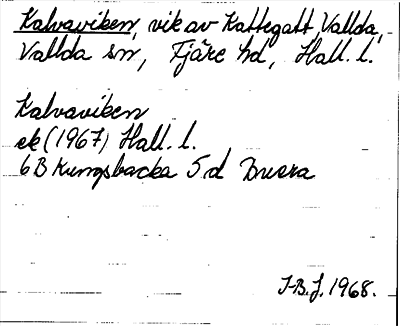 Kalvaviken, vik av Kattegatt, Vallda,
Vallda sn, Fjäre hd, Hall. l.
Kalvaviken
ek (1967) Hall. l.
6B Kungsbacka 5d
J-B.J. 1968.